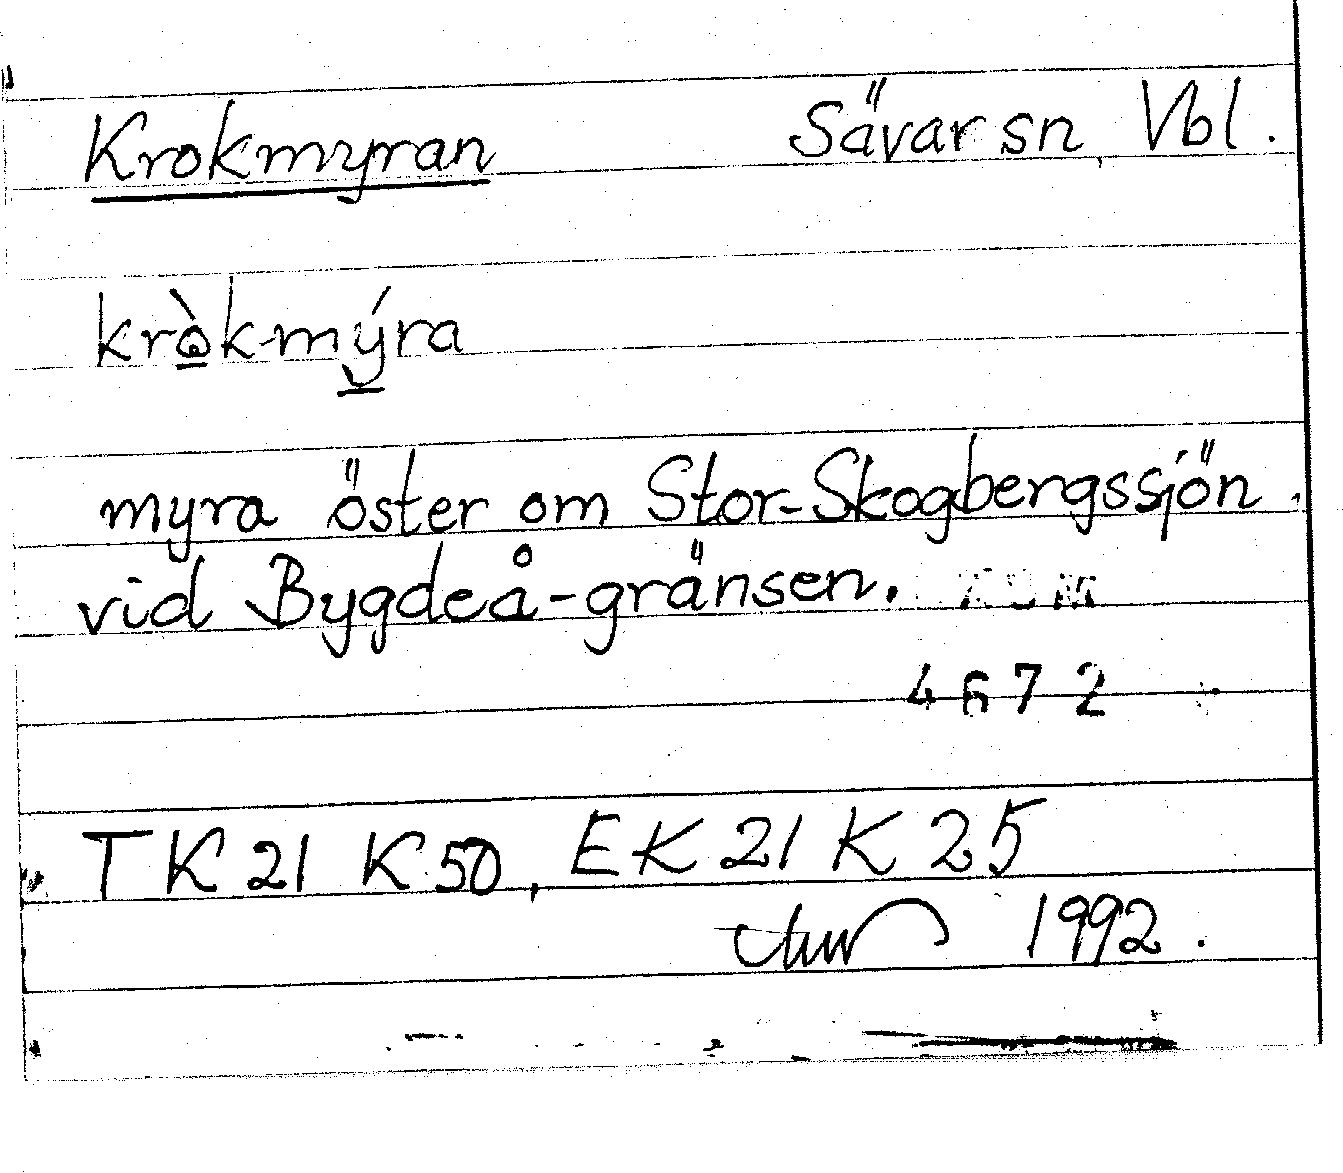 Krokmyran Sävar sn, Vbl.
kròk-mýra
myra öster om Stor-Skogbergssjön
vid Bygdeå-gränsen.
4672
TK 21 K 50, EK 21 K 25
1992.